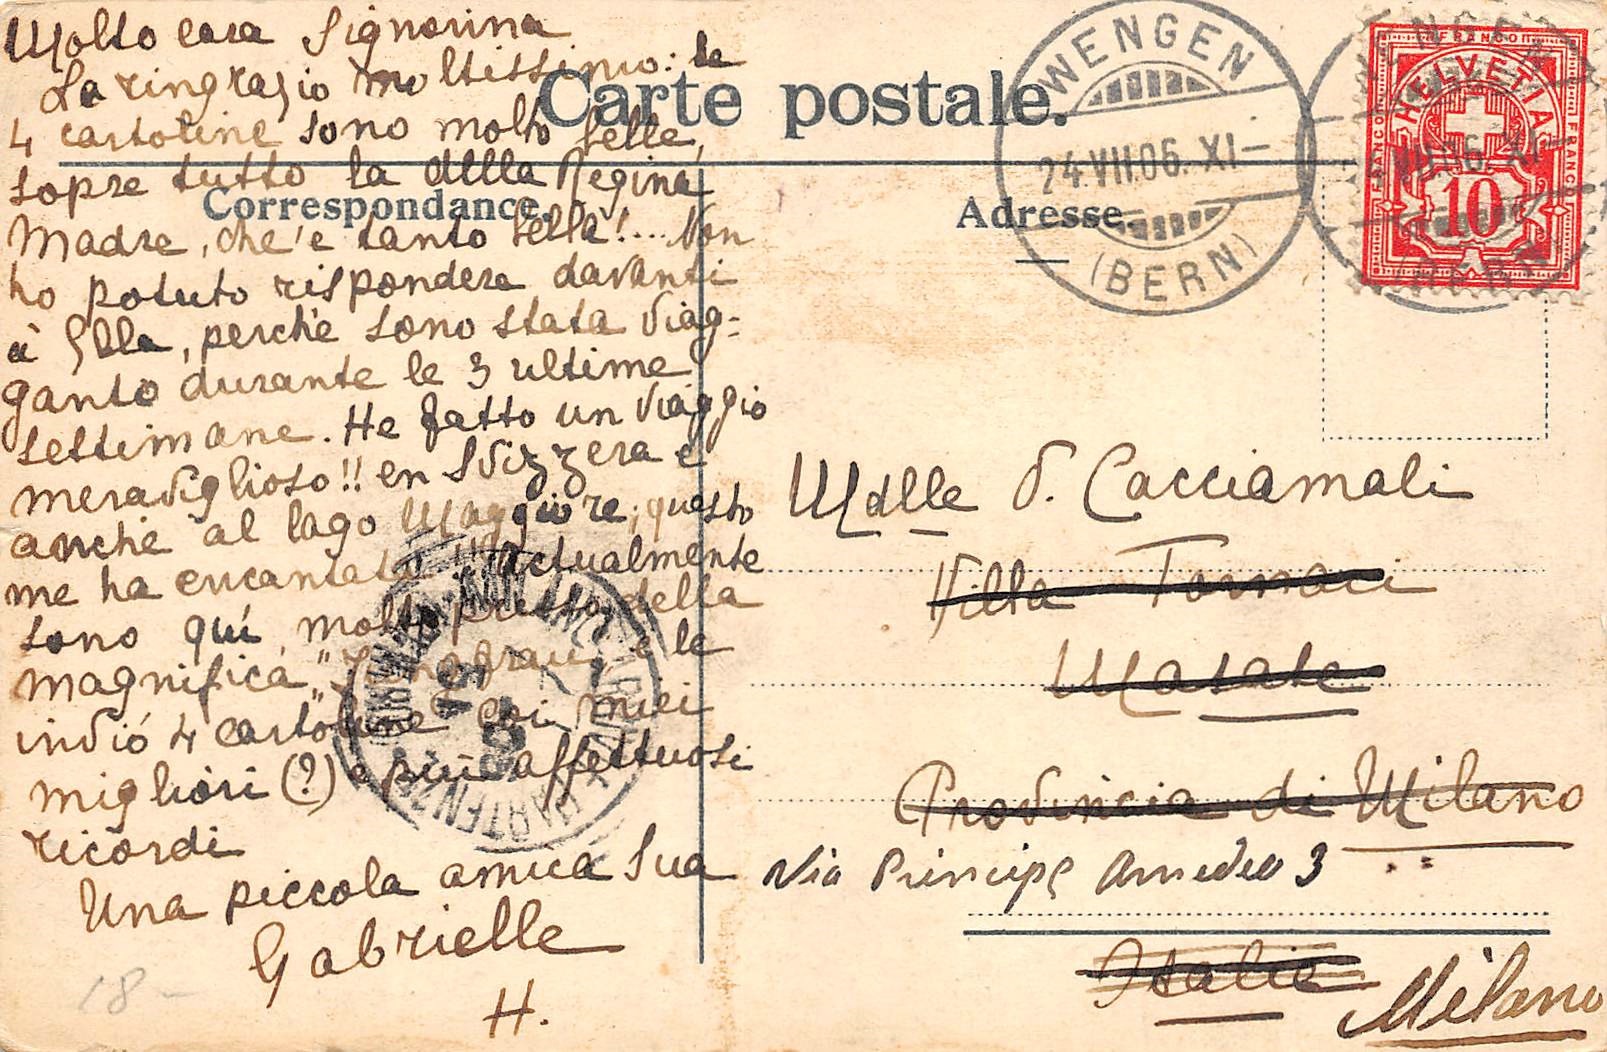 Molto cara Signorina
La ringrazio moltissimo: le
4 cartoline sono molto belle,
sopre tutto la della Regina
Madre, che è tanto bella!... Non
ho potuto rispondere davanti
à Ella, perchè sono stata viag-
ganto durante le 3 ultime
settimane. He fatto un viaggio
meraviglioso!! en Svizzera e
anche al lago Maggiore; questo
me ha encantata!! Actualmente
sono qui, molto presso della
magnifica "Jungfrau" e le
invió 4 cartoline coi miei
migliori (?) e più affettuosi
ricordi
Una piccola amica Sua
Gabrielle
H.
18 -
Carte postale.
Correspondance.
Adresse.
WENGEN
24.VII.06. XI-
(BERN)
WENGEN
24.VII.06. XI-
(BERN)
FRANCO
FRANCO
FRANCO
HELVETIA
10
Mdlle V. Cacciamali
Villa Fornaci
Masate
Provincia di Milano
Via Principe Amedeo 3
Italie
Milano
MILANO